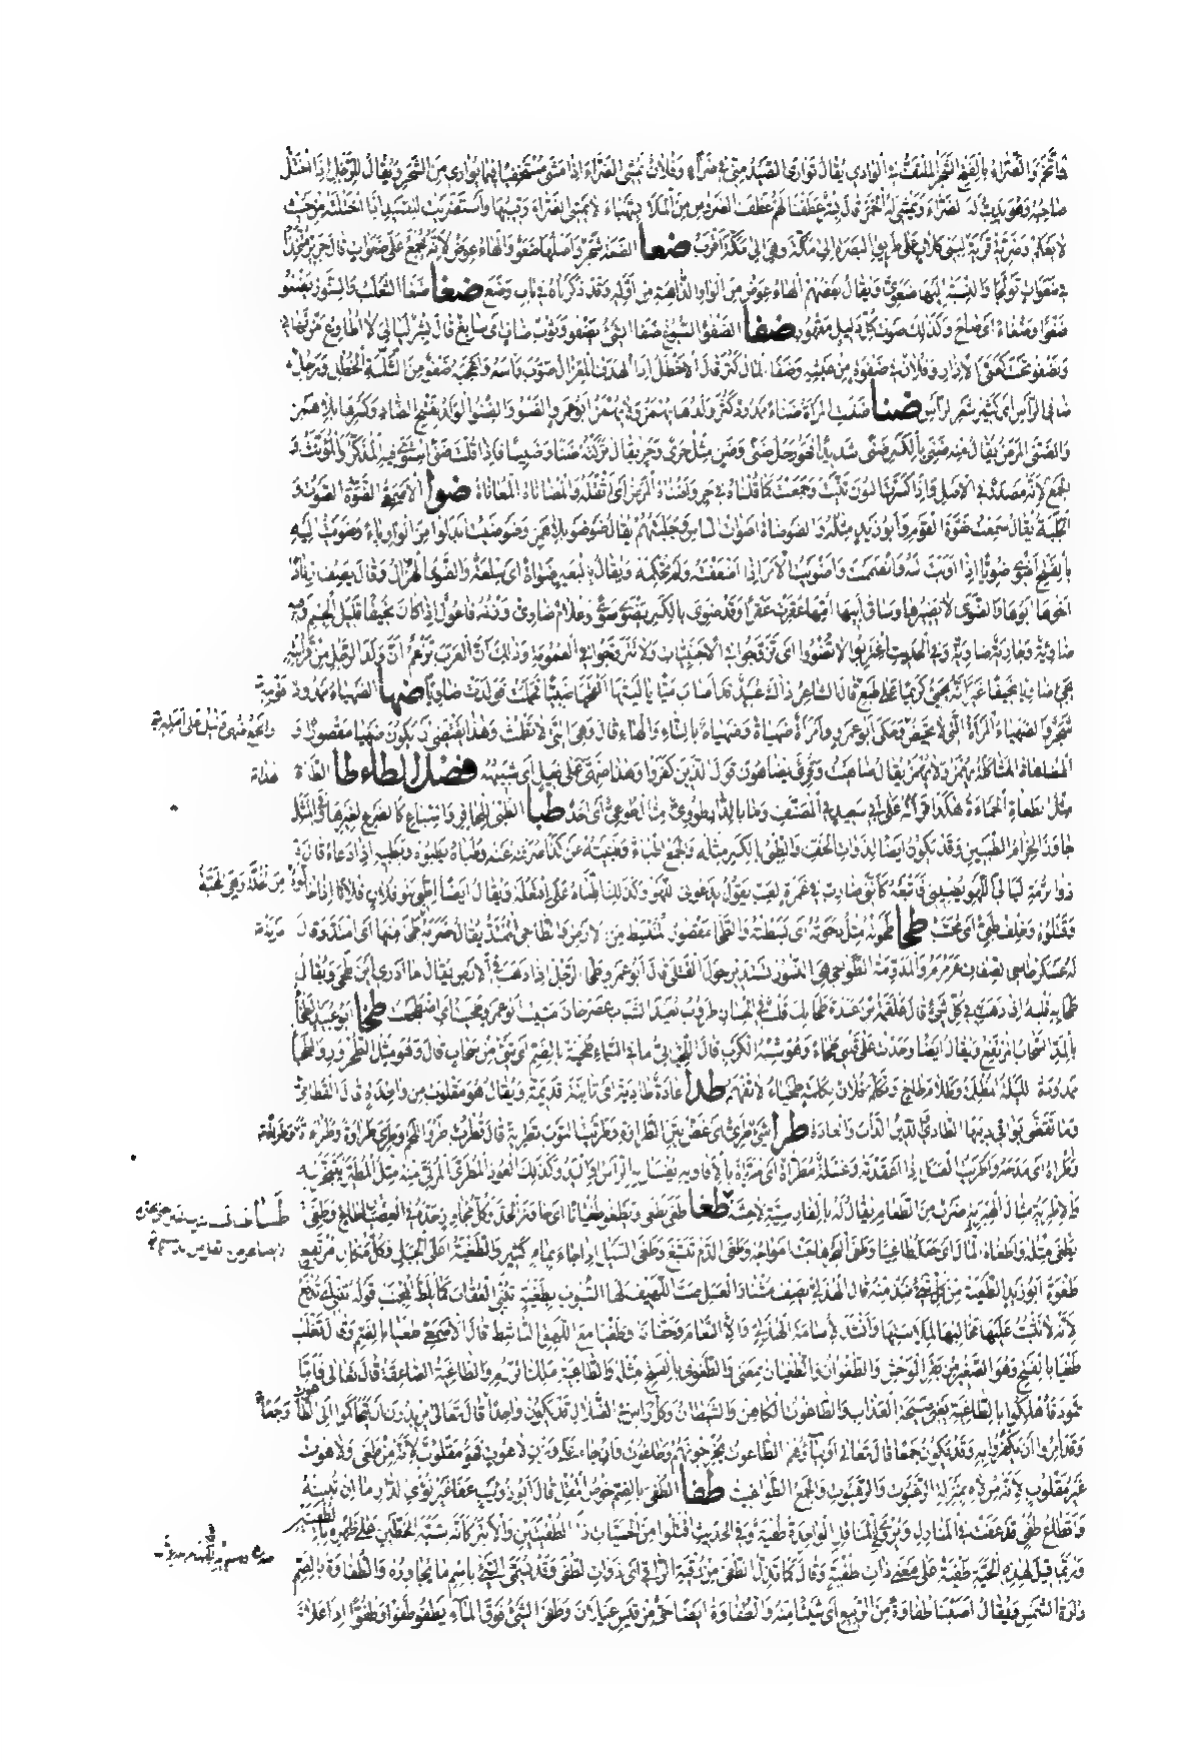 فالخمر والضراء بالفتح الشجر الملتف في الوادي يقال توارى الصيد مني في ضراء وفلان يمشي الضراء إذا مشى مستخفيا فيما يواري من الشجر ويقال للرجل إذا ختل
صاحبه وهو يدب له الضراء ويمشي له الخمر قال بشر عطفنا لهم عطف الضروس من الملا بشهباء لا يمشي الضراء رقيبها واستضريت للصيد إذا ختلته من حيث
لا يعلم وضرية قرية لبني كلاب على طريق البصرة إلى مكة وهي إلى مكة أقرب ضعا الضعة شجر وأصلها ضعو والهاء عوض لأنه يجمع على ضعوات قال جرير متخذا
في ضعوات تولجا والنسبة إليها ضعوي ويقال بعضهم الهاء عوض من الواو الذاهبة من أوله وقد ذكرناه في باب وضع ضغا ضغا الثعلب والسنور يضغو
ضغوا وضغاء أي صاح وكذلك صوت كل ذليل مقهور ضفا الضفو السبوغ ضفا الشيء يضفو وثوب ضاف أي سابغ قال بشر ليالي لا أطاوع من نهاني
ويضفو تحت كعبي الإزار وفلان في ضفوة من عيشه وضفا المال كثر قال الأخطل إذا الهدف المعزال صوب رأسه وأعجبه ضفو من الثلة الخطل ورجل
ضافي الرأس أي كثير شعر الرأس ضنا ضنت المرأة ضناء ممدود كثر ولدها يهمز ولا يهمز أبو عمرو الضنو والضنو الولد بفتح الضاد وكسرها بلا همز
والضنى المرض يقال منه ضني بالكسر يضنى ضنى شديدا فهو رجل ضنى وضن مثل حرى وحر يقال تركته ضنى وضنيا فإذا قلت ضنى استوى فيه المذكر والمؤنث و
الجمع لأنه مصدر في الأصل وإذا كسرت النون ثنيت وجمعت كما قلناه في حر وأضناه المرض أي أثقله والمضاناة المعاناة ضوا الأصمعي الضوة الصوت و
الجلبة يقال سمعت ضوة القوم وأبو زيد مثله والضوضاة أصوات الناس وجلبتهم يقال ضوضوا بلا همز وضوضيت أبدلوا من الواو ياء وضويت إليه
بالفتح أضوي ضويا إذا أويت إليه وانضممت وأضويت الأمر إذا أضعفته ولم تحكمه ويقال بالبعير ضواة أي سلعة والضوى الهزال وقال يصف زندا
أخوها أبوها والضوى لا يضيرها وساق أبيها أمها عقرت عقرا وقد ضوي بالكسر يضوى ضوى وغلام ضاوي وزنه فاعول إذا كان نحيفا قليل الجسم وفيه
ضاوية وجارية ضاوية وفي الحديث اغتربوا لا تضووا أي تزوجوا في الأجنبيات ولا تتزوجوا في العمومة وذلك أن العرب تزعم أن ولد الرجل من قرابته
يجيء ضاويا نحيفا غير أنه يجيء كريما على طبع قومه قال الشاعر ذاك عبيد قد أصاب ميا يا ليته ألقحها صبيا فحملت فولدت ضاويا ضها الضهياء ممدود
شجر والضهياء المرأة التي لا تحيض وحكى أبو عمرو وامرأة ضهياة وضهياه بالتاء والهاء قال وهي التي لا تطمث وهذا يقتضي أن يكون الضهيا مقصورا و
المضاهاة المشاكلة يهمز ولا يهمز يقال ضاهيت وقرئ يضاهون قول الذين كفروا وهذا ضهي هذا على فعيل أي شبيهه فصل الطاء طا الطاة
مثل الطعاة الحمأة هكذا قرأته على أبي سعيد في المصنف وما بالدار طوئي مثال طوعي أي أحد طبا الطبي للحافر والسباع كالضرع لغيرها وفي المثل
جاوز الحزام الطبيين وقد يكون أيضا لذوات الخف والطبي بالكسر مثله والجمع أطباء وطبيته عن كذا صرفته عنه وطباه يطبوه ويطبيه إذا دعاه قال
ذو الرمة ليالي اللهو يطبيني فأتبعه كأنني ضارب في غمرة لعب يقول يدعوني اللهو وكذلك اطباه على افتعله ويقال أيضا اطبى بنو فلان فلانا إذا خالوه
وقتلوه وخلف طبي أي مجيب طحا طحوته مثل دحوته أي بسطته والطحا مقصور المنبسط من الأرض والطاحي الممتد يقال ضربه ضربة طحا منها أي امتد وقال
له عسكر طاحي الضفاف عرمرم والمدومة الطواحي هي النسور تستدير حول القتلى قال أبو عمرو وطحا الرجل إذا ذهب في الأرض يقال ما أدري أين طحا ويقال
طحا به قلبه إذا ذهب به في كل شيء قال علقمة بن عبدة طحا بك قلب في الحسان طروب بعيد الشباب عصر حان مشيب أبو عمرو طحيت أي اضطجعت طخا أبو عبيد الطخاء
بالمد السحاب المرتفع ويقال أيضا وجدت على قلبي طخاء وهو شبه الكرب قال اللحياني ما في السماء طخية بالضم أي شيء من سحاب قال وهو مثل الطحرور والطخياء
ممدودة الليلة المظلمة وظلام طاخ وتكلم فلان بكلمة طخياء لا تفهم طدا عادة طادية أي ثابتة قديمة ويقال هو مقلوب من واطدة قال القطامي
وما تقضى بواقي دينها الطادي الدين الدأب والعادة طرا شيء طري أي غض بين الطراوة وطريت الثوب تطرية قال قطرب طرو اللحم وطري طراوة وطراء
وأطراه أي مدحه وأطريت العسل إذا أعقدته وغسلة مطراة أي مرباة بالأفاويه يغسل بها الرأس أو اليد وكذلك العود المطرى المربى منه مثل المطير يتبخر به
والإطرية مثال الهبرية ضرب من الطعام ويقال له بالفارسية لاخشة طغا طغى يطغى ويطغو طغيانا أي جاوز الحد وكل مجاوز حده في العصيان طاغ وطغي
يطغى مثله وأطغاه المال أي جعله طاغيا وطغى البحر هاجت أمواجه وطغى الدم تبيغ وطغى السيل إذا جاء بماء كثير والطغية أعلى الجبل وكل مكان مرتفع
طغوة أبو زيد الطغية من كل شيء نبذة منه قال الهذلي يصف مشتار العسل صب اللهيف لها السبوب بطغية تنبي العقاب كما يلط المجنب قوله تنبي أي تدفع
لأنه لا تثبت عليها مخالبها لملاستها وأنشد لأسامة الهذلي وإلا النعام وحفانه وطغيا مع اللهق الناشط قال الأصمعي طغيا بالضم وقال ثعلب
طغيا بالفتح وهو الصغير من بقر الوحش والطغوان والطغيان بمعنى والطغوى بالفتح مثله والطاغية ملك الروم والطاغية الصاعقة قال تعالى فأما
ثمود فأهلكوا بالطاغية يعني صيحة العذاب والطاغوت الكاهن والشيطان وكل رأس في الضلال قد يكون واحدا قال تعالى يريدون أن يتحاكموا إلى الطاغوت
وقد أمروا أن يكفروا به وقد يكون جمعا قال تعالى أولياؤهم الطاغوت يخرجونهم وطاغوت وإن جاء على وزن لاهوت فهو مقلوب لأنه من طغى ولاهوت
غير مقلوب لأنه من لاه بمنزلة الرغبوت والرهبوت والجمع الطواغيت طفا الطفي بالضم خوص المقل قال أبو ذؤيب عفا غير نؤي الدار ما إن تبينه
وأقطاع طفي قد عفت في المنازل ويروى في المناقل الواحدة طفية وفي الحديث اقتلوا من الحيات ذا الطفيتين والأبتر كأنه شبه الخطين على ظهره بالطفيتين
وربما قيل لهذه الحية طفية على معنى ذات طفية وقال كما تذل الطفى من رقية الراقي أي ذوات الطفى وقد يسمى الشيء باسم ما يجاوره والطفاوة بالضم
دارة الشمس ويقال أصبنا طفاوة من الربيع أي شيئا منه والطفاوة أيضا حي من قيس عيلان وطفا الشيء فوق الماء يطفو طفوا وطفوا إذا علا